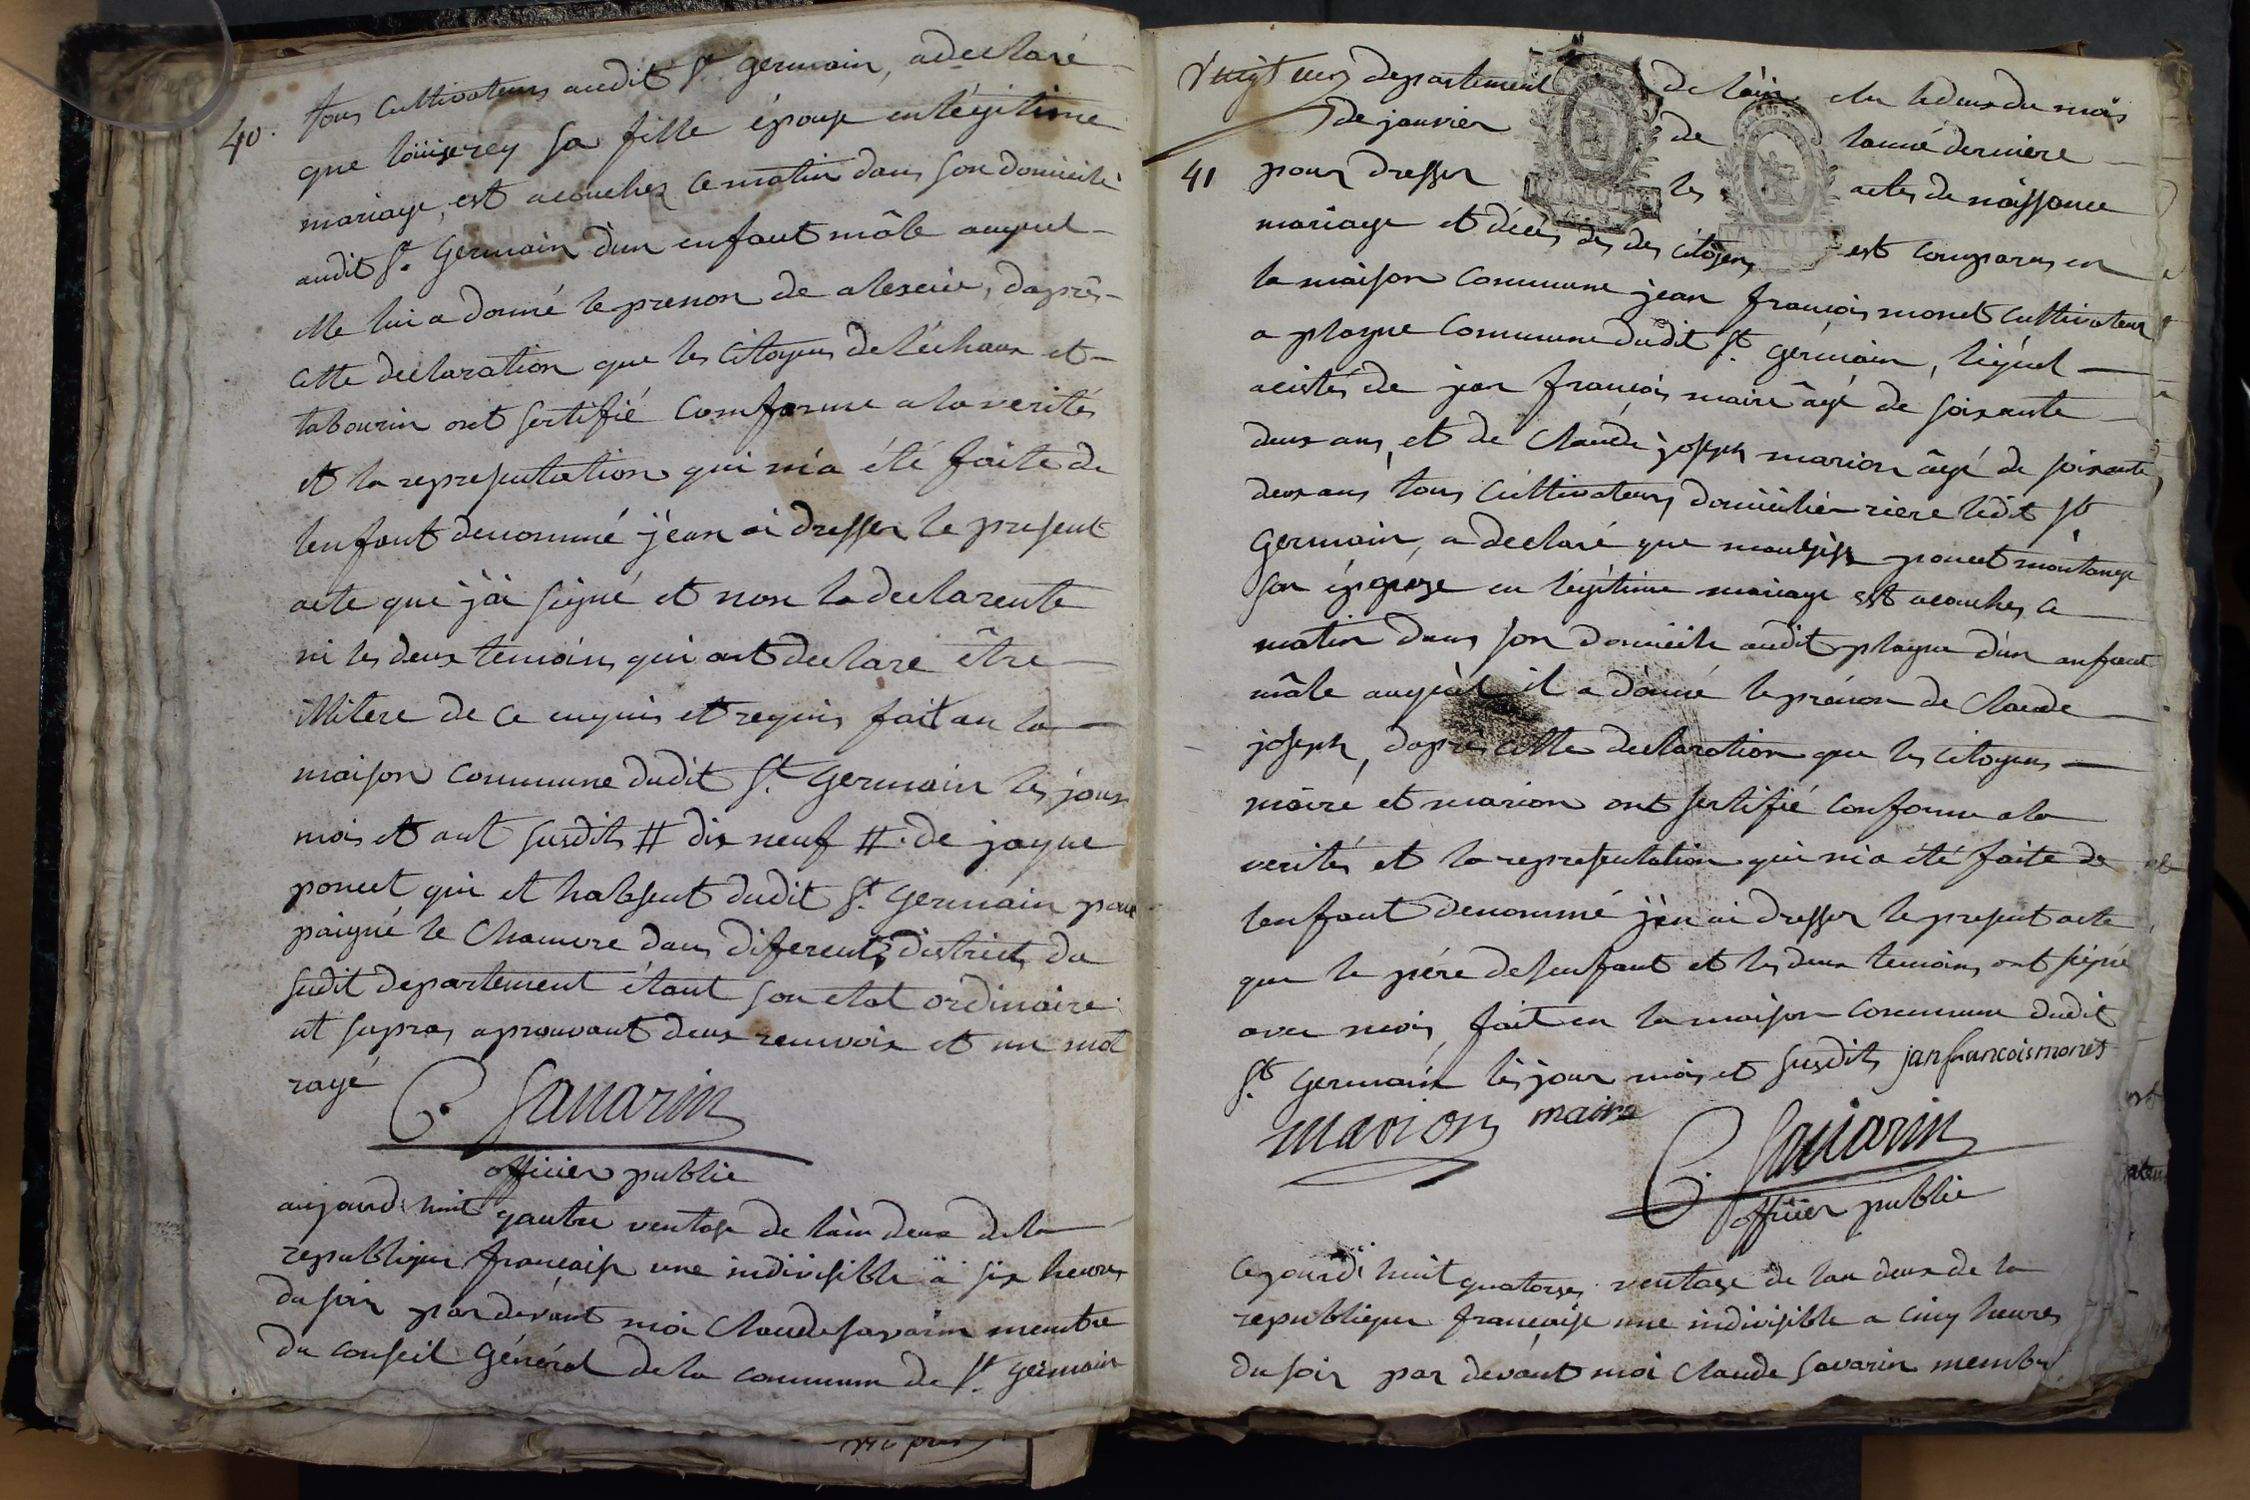 40.
tous Cultivateurs audit St germain, a declaré
que loüise rey sa fille épouse en légitime
mariage, est acouchez ce matin dans son domicile
audit St. Germain d'un enfant mâle auquel
elle lui a donné le prenon de alexcie, d'aprês
cette declaration que les Citoyens deléchaux et
tabourin ont sertifié Comforme a la verités
et la representation qui m'a été faite de
lenfant denommé j'ean ai dresser le present
acte que j'ai signé et non la declarente
ni les deux temoins qui ont declare être
illitere de ce enquis et requis fait an la
maison Commune dudit St. Germain les jour
mois et ant susdits # dix neuf # de jaque
poncet qui et habsent dudit St. Germain pour
paigné le Chanvre dans diferents districts du
sudit departement étant son etat ordinaire.
ut supra, aprouvant deux renvois et un mot
rayé
C. Savarin
officier public
aujourd'huit quatre ventose de l'an deux de la
republique francaise une indivisible à six heures
du soir par devant moi Claude Savarin membre
du Conseil Général de la commune de St. germain
41
departement de l'ain elu le deux du mois
de janvier de lanné derniere
pour dresser les actes de naissance
mariage et décés des des citoyens est comparus en
la maison Commune jean françois monet Cultivateur
a plagne Commune dudit St. germain, léquel
acistés de jan françois maire âgé de soixante
deux ans, et de Claude joseph marion âgé de soixante
deux ans tous Cultivateurs domiciliér riere ledit St
Germain, a declaré que poncet montange
son épouze en légitime mariage est acouchez ce
matin dans son domicile audit plagne d'un anfant
mâle auquel il a donné le prénon de Claude
joseph, d'après cette declaration que les citoyens
maire et marion ont sertifié conforme a la
verités et la representation qui m'a été faite de
lenfant denommé j'en ai dresser le present acte
que le pére de lenfant et les deux temoins ont signé
avec moi, fait en la maison commune dudit
St. Germain les jour mois et susdits jan francois monet
marion maire
C. Savarin
officier public
Cejourd'huit quatorze ventose de lan deux de la
republique française une indivisible a cinq heures
du soir par devant moi Claude Savarin membre